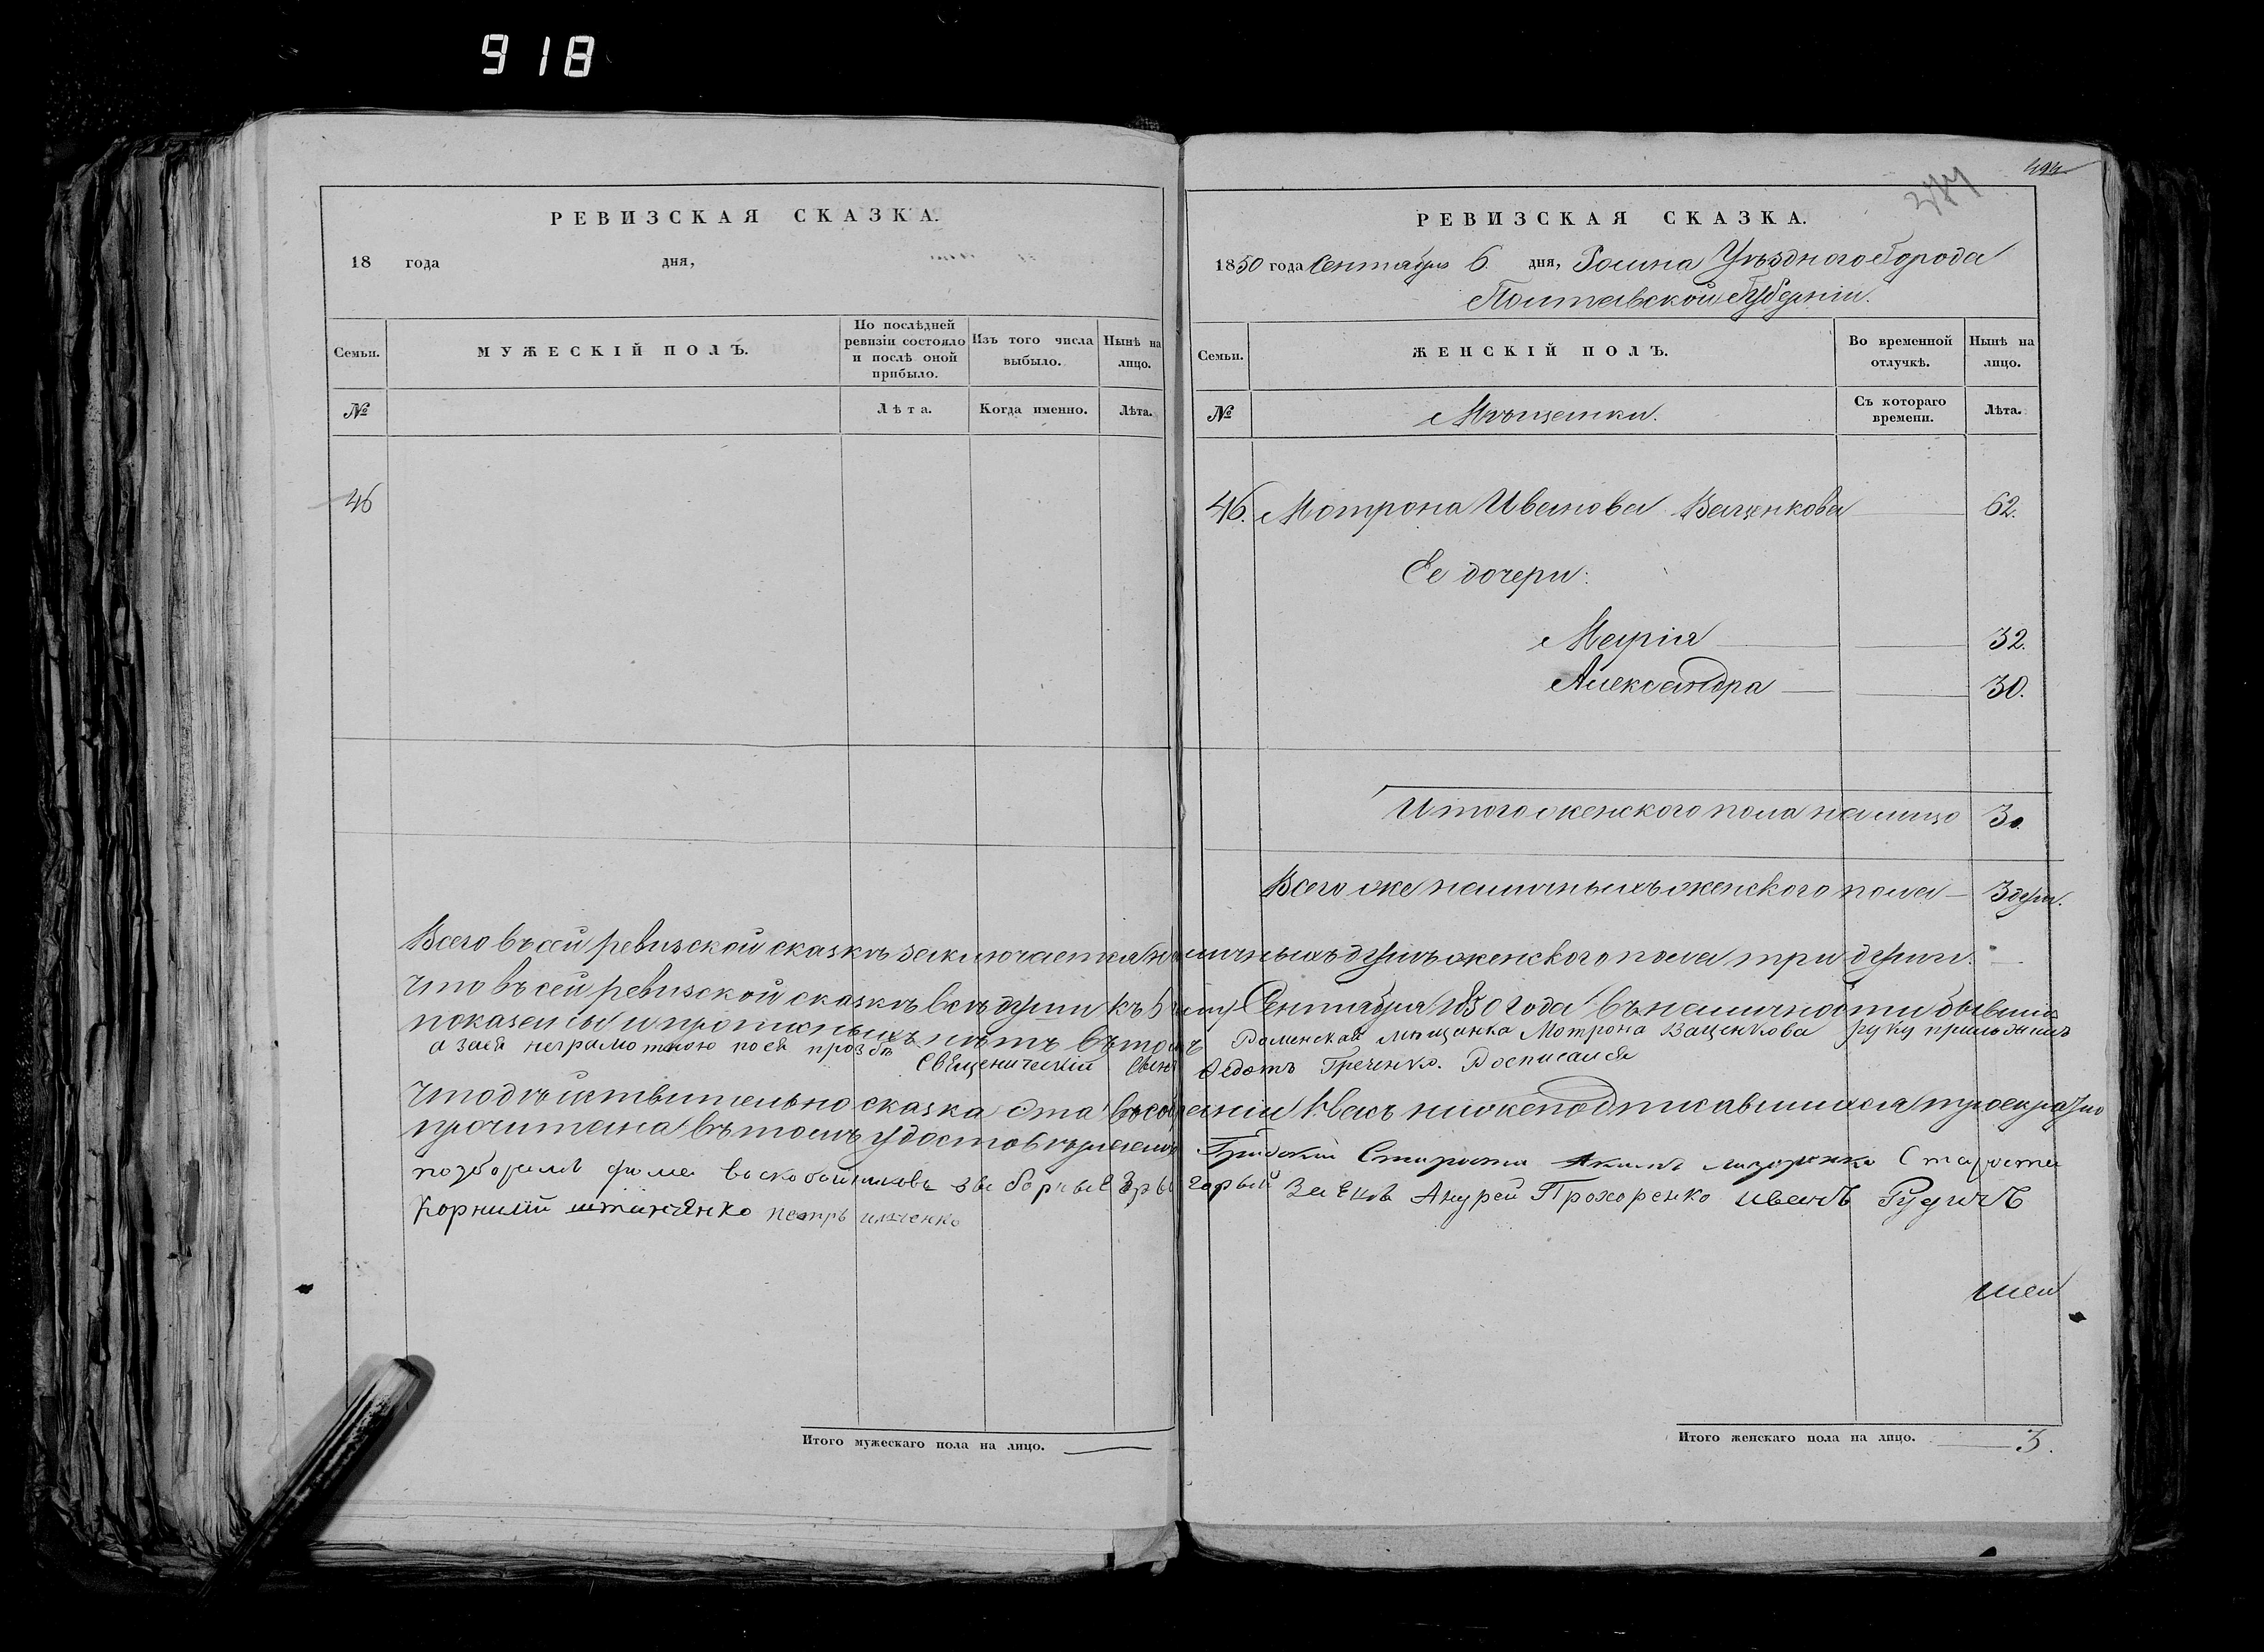 918
РЕВИЗСКАЯ СКАЗКА.
18 года дня,
Семьи.
МУЖЕСКІЙ ПОЛЪ.
По послѣдней ревизіи состояло и послѣ оной прибыло.
Изъ того числа выбыло.
Нынѣ на лицо.
№
Лѣта.
Когда именно.
Лѣта.
46
494
РЕВИЗСКАЯ СКАЗКА.
1850 года Сентября 6 дня, Ромна Уѣзднаго Города
Полтавской Губерніи.
Семьи.
ЖЕНСКІЙ ПОЛЪ.
Во временной отлучкѣ.
Нынѣ на лицо.
№
Мѣщанки.
Съ котораго времени.
Лѣта.
46. Мотрона Иванова Ващенкова 62.
Ее дочери:
Марія 32.
Александра 30.
Итого женского пола налицо 3.
Всего же наличныхъ женского пола — 3 души.
Всего въ сей ревизской сказкѣ заключается наличныхъ душъ женского пола три души. —
Что въ сей ревизской сказкѣ всѣ души къ Сентября 1850 года въ наличности бывшія
показаны и прописныхъ нѣтъ въ томъ Роменская мѣщанка Мотрона Ващенкова руку приложила
а за ея неграмотною по ея прозбѣ Свѣщеническій Сынъ Ѳедотъ Гречинко. Росписался
Что дѣйствительно сказка эта въ собраніи насъ нижеподписавшихся троекратно
прочитана въ томъ удостовѣряемъ Градскій Староста Якимъ Староста
Фома Воскобойниковъ Заецъ Андрей Прохоренко Иванъ Рудичъ
Корнилій Петръ
Итого мужескаго пола на лицо. —
Итого женскаго пола на лицо. — 3.